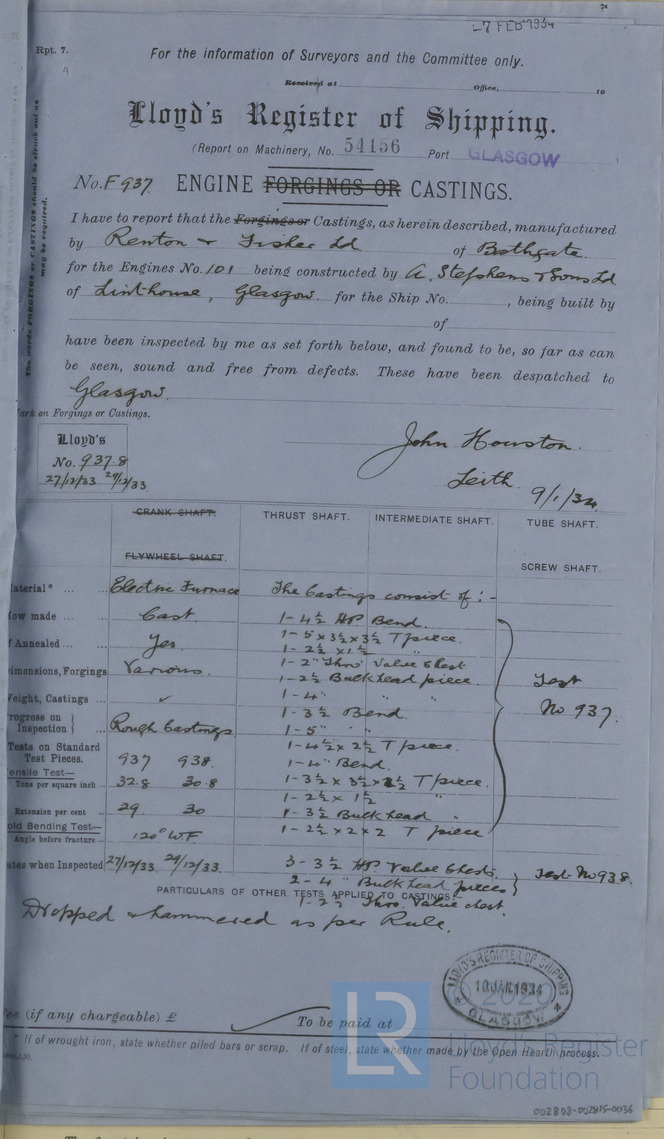 -7 FEB 1934
Rpt. 7.
For the information of Surveyors and the Committee only.
Received at Office, 19
Lloyd's Register of Shipping.
(Report on Machinery, No. 54156 Port GLASGOW )
No. F 937. ENGINE FORGINGS OR CASTINGS.
I have to report that the Forgings or Castings, as herein described, manufactured
by Renton & Fisher Ld of Bathgate
for the Engines No. 101 being constructed by A. Stephens & Sons Ld
of Linthouse, Glasgow. for the Ship No. , being built by
of
have been inspected by me as set forth below, and found to be, so far as can
be seen, sound and free from defects. These have been despatched to
Glasgow.
The words FORGINGS or CASTINGS should be struck out as
may be required.
ark on Forgings or Castings.
Lloyd's
No. 937.8
27/12/33 29/12/33
John Houston.
Leith. 9/1/34
CRANK SHAFT. THRUST SHAFT. INTERMEDIATE SHAFT. TUBE SHAFT.
FLYWHEEL SHAFT. SCREW SHAFT.
aterial* ... ... Electric Furnace The Castings consist of :-
ow made ... Cast 1- 4½ HP. Bend.
1- 5 x 3½ x 3½ T piece.
f Annealed ... ... Yes. 1- 2½ x 1½ "
1- 2" Thro' Valve Chest
imensions, Forgings Various. 1- 2½ Bulkhead piece. Test
eight, Castings ... ✓ 1- 4" " "
No 937.
rogress on Inspection } Rough Castings 1- 3½ Bend.
1- 5" " "
Tests on Standard Test Pieces. 937 938. 1- 4½ x 2½ T piece.
1- 4" Bend.
ensile Test—
Tons per square inch 32.8 30.8 1- 3½ x 3½ x 2½ T piece.
1- 2½ x 1½ "
Extension per cent ... 29 30 1- 3½ Bulkhead "
old Bending Test—
Angle before fracture ... 120° WF. 1- 2½ x 2 x 2 T piece
ates when Inspected 27/12/33 29/12/33. 3- 3½ HP. Valve Chests. } Test No 938.
2- 4" Bulkhead pieces
PARTICULARS OF OTHER TESTS APPLIED TO CASTINGS:—
1- 2½ Thro. Valve chest.
Dropped & hammered as per Rule.
LLOYD'S REGISTER OF SHIPPING
10 JAN 1934
GLASGOW
ee (if any chargeable) £ To be paid at
* If of wrought iron, state whether piled bars or scrap. If of steel, state whether made by the Open Hearth process.
© 2020
LR
Lloyd's Register
Foundation
002808-002815-0036